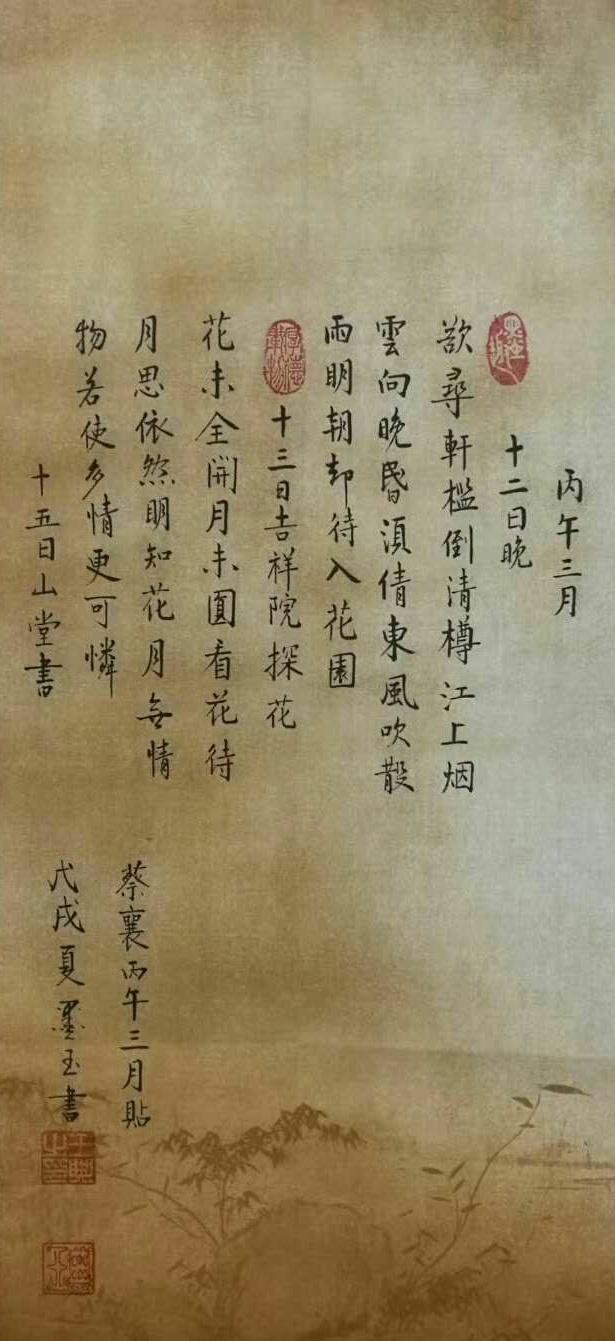 丙午三月
十二日晚
欲尋軒檻倒清樽江上烟
雲向晚昏須倩東風吹散
雨明朝却待入花園
厚德載物
十三日吉祥院探花
花未全開月未圓看花待
月思依然明知花月無情
物若使多情更可憐
十五日山堂書
蔡襄丙午三月貼
戊戌夏墨玉書